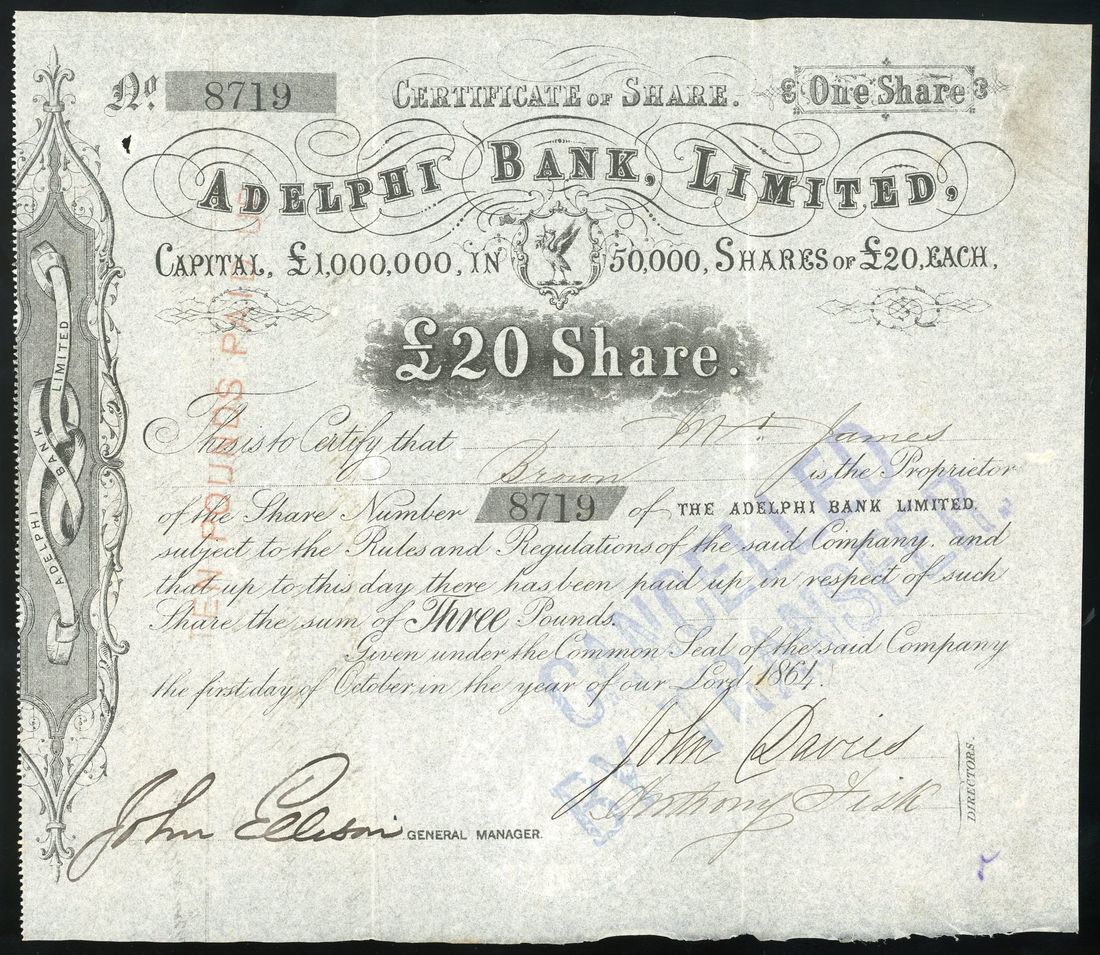 No. 8719 CERTIFICATE OF SHARE. One Share
ADELPHI BANK, LIMITED,
CAPITAL, £1,000,000, IN 50,000, SHARES OF £20, EACH,
£20 Share.
This is to Certify that Mr. James
Brown is the Proprietor
of the Share Number 8719 of THE ADELPHI BANK LIMITED.
subject to the Rules and Regulations of the said Company, and
that up to this day there has been paid up in respect of such
Share the sum of Three Pounds.
Given under the Common Seal of the said Company
the first day of October in the year of our Lord 1864.
John Davies
Anthony Fisk
DIRECTORS.
John Ellison GENERAL MANAGER.
ADELPHI BANK LIMITED
TEN POUNDS PAID UP
CANCELLED
BY TRANSFER.